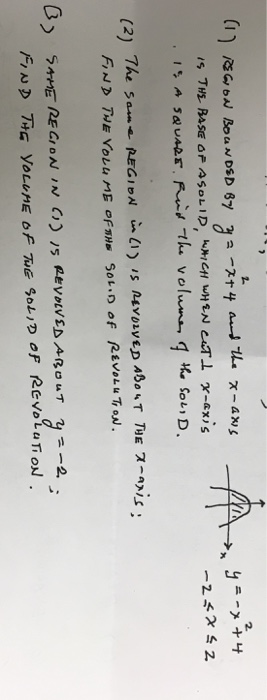 (1) REGION BOUNDED BY y = -x² + 4 and the x-axis
IS THE BASE OF A SOLID, WHICH WHEN CUT ⊥ x-axis
IS A SQUARE. Find the volume of the SOLID.
y = -x² + 4
-2 ≤ x ≤ 2
x
(2) The same REGION in (1) IS REVOLVED ABOUT THE x-axis;
FIND THE VOLUME OF THE SOLID OF REVOLUTION.
(3) SAME REGION IN (1) IS REVOLVED ABOUT y = -2;
FIND THE VOLUME OF THE SOLID OF REVOLUTION.